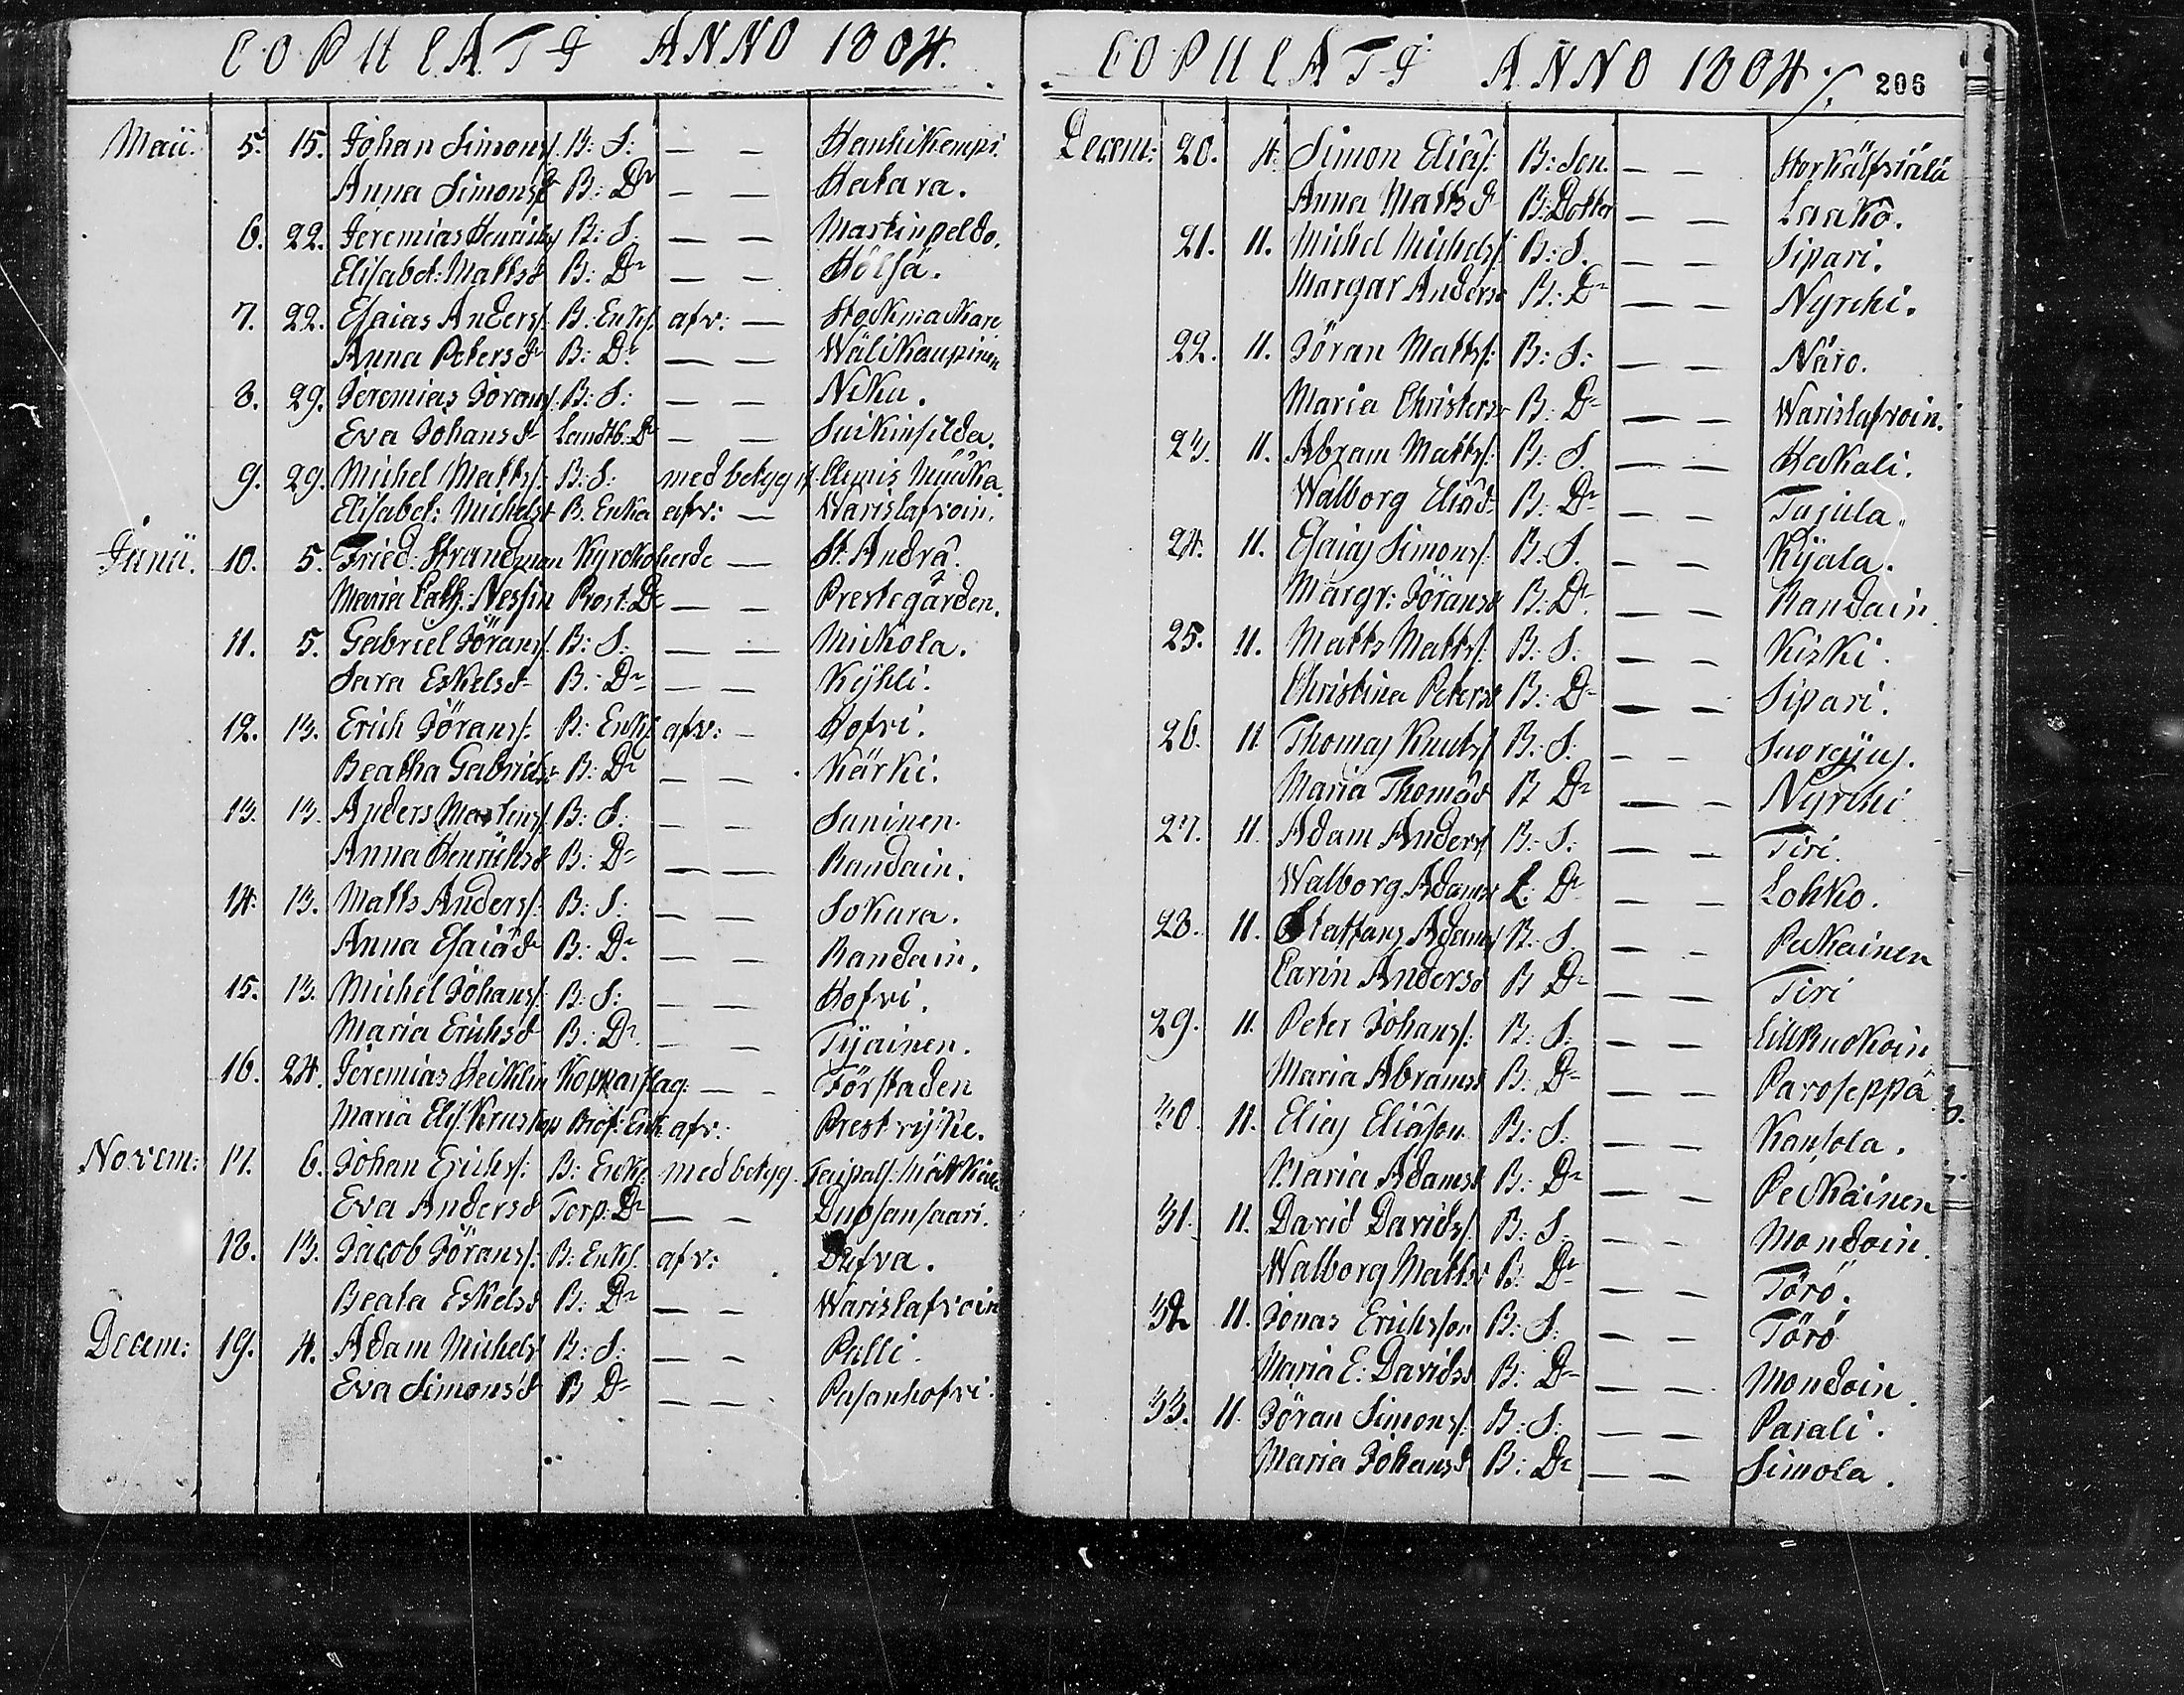 COPULATI ANNO 1804.
Maii. 5. 15. Johan Simons/. B: S: — — Hanhikempi.
Anna Simonsd B: Dr — — Katara.
6. 22. Jeremias Henrichs/ B: S: — — Martinpeldo.
Elisabet: Mattsd B: Dr — — Hölsä.
7. 22. Esaias Anders/. B. Enkl. afv: — Stockmackare
Anna Petersdr B: Dr — — Wälikaupinen
8. 29. Jeremias Jörans/. B: S: — — Niku.
Eva Johansdr Landtb: Dr — —
9. 29. Michel Matts/. B: S: med betyg
Elisabet: Michelsd B. Enka afv: — Warislafvoin.
Junii. 10. 5. Fried: Strandman Kyrckoherde — St. Andræ.
Maria Cath: Nessin Prost: Dr — — Prestegården.
11. 5. Gabriel Jörans/. B: S: — — Mickola.
Sara Eskelsd B: Dr — — Kyhli.
12. 13. Erich Jörans/: B: Enkl. afv: — Hofvi.
Beatha Gabrielsd B: Dr — — Kärki.
13. 13. Anders Martins/. B: S: — — Suninen.
Anna Henrichsd B: Dr — — Randain.
14. 13. Matts Anders/: B: S: — — Sokura.
Anna Esaiæd B: Dr — — Randain.
15. 13. Michel Johans/: B: S: — — Hofvi.
Maria Erichsd B: Dr — — Tijainen.
16. 24. Jeremias Heiklin Kopparslag: — — Förstaden
Maria Elis. Kruskop Prof: Enk. afv: Prest
Novem: 17. 6. Johan Erichs/: B: Enkl. med betyg. Taipals:
Eva Andersd Torp: Dr — — Dupsansaari.
18. 13. Jacob Jörans/: B: Enkl. afv: Dufva.
Beata Eskelsd B: Dr — — Warislafvoin
Decem: 19. 4. Adam Michels/ B: S: — — Pulli.
Eva Simonsd B Dr — — Pasanhofvi.
COPULATI ANNO 1804. 206
Decem: 20. 4. Simon Elias/: B: Son. — —
Anna Mattsd B: Dotter — — Laako.
21. 11. Michel Michels/: B: S. — — Sipari.
Margar Andersd B: Dr — — Nyrchi.
22. 11. Jöran Matts/: B: S: — — Näro.
Maria Christersd B: Dr — — Warislafvoin.
23. 11. Abram Matts/: B: S. — — Hakali.
Walborg Eliæd B: Dr — — Tujula.
24. 11. Esaias Simons/: B: S. — — Kijala.
Margr: Jöransd B: Dr — — Randain.
25. 11. Matts Matts/: B: S: — — Kiski.
Christina Petersd B: Dr — — Sipari.
26. 11. Thomas Knuts/ B: S: — — Suorsjus.
Maria Thomæd B Dr — — Nyrchi
27. 11. Adam Anders/ B: S: — — Tiri.
Walborg Adamsd L: Dr — — Lohko.
28. 11. Staffans Adams/ B: S. — — Peckainen
Carin Andersd B Dr — — Tiri
29. 11. Peter Johans/: B: S: — — Lillkuckoin
Maria Abramsd B: Dr — — Paroseppä.
30. 11. Elias Eliason B: S: — — Kansola.
Maria Adamsd B: Dr — — Peckainen
31. 11. David Davids/. B: S: — — Mondoin.
Walborg Mattsd B: Dr — — Törö.
32. 11. Jonas Erichsson B: S: — — Törö
Maria E: Davidsd B: Dr — — Mondoin.
33. 11. Jöran Simons/: B: S: — — Parali.
Maria Johansd B: Dr — — Simola.